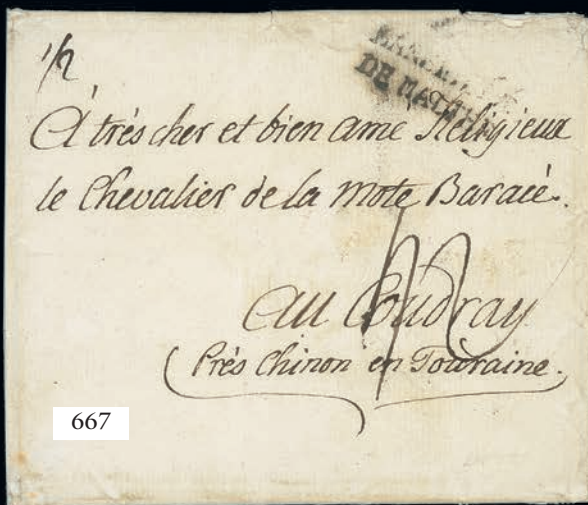 1/2
DE MALTHE
A trés cher et bien amé Religieux
le Chevalier de la Mote Baracé.
Au Coudray
Prés Chinon en Touraine.
667